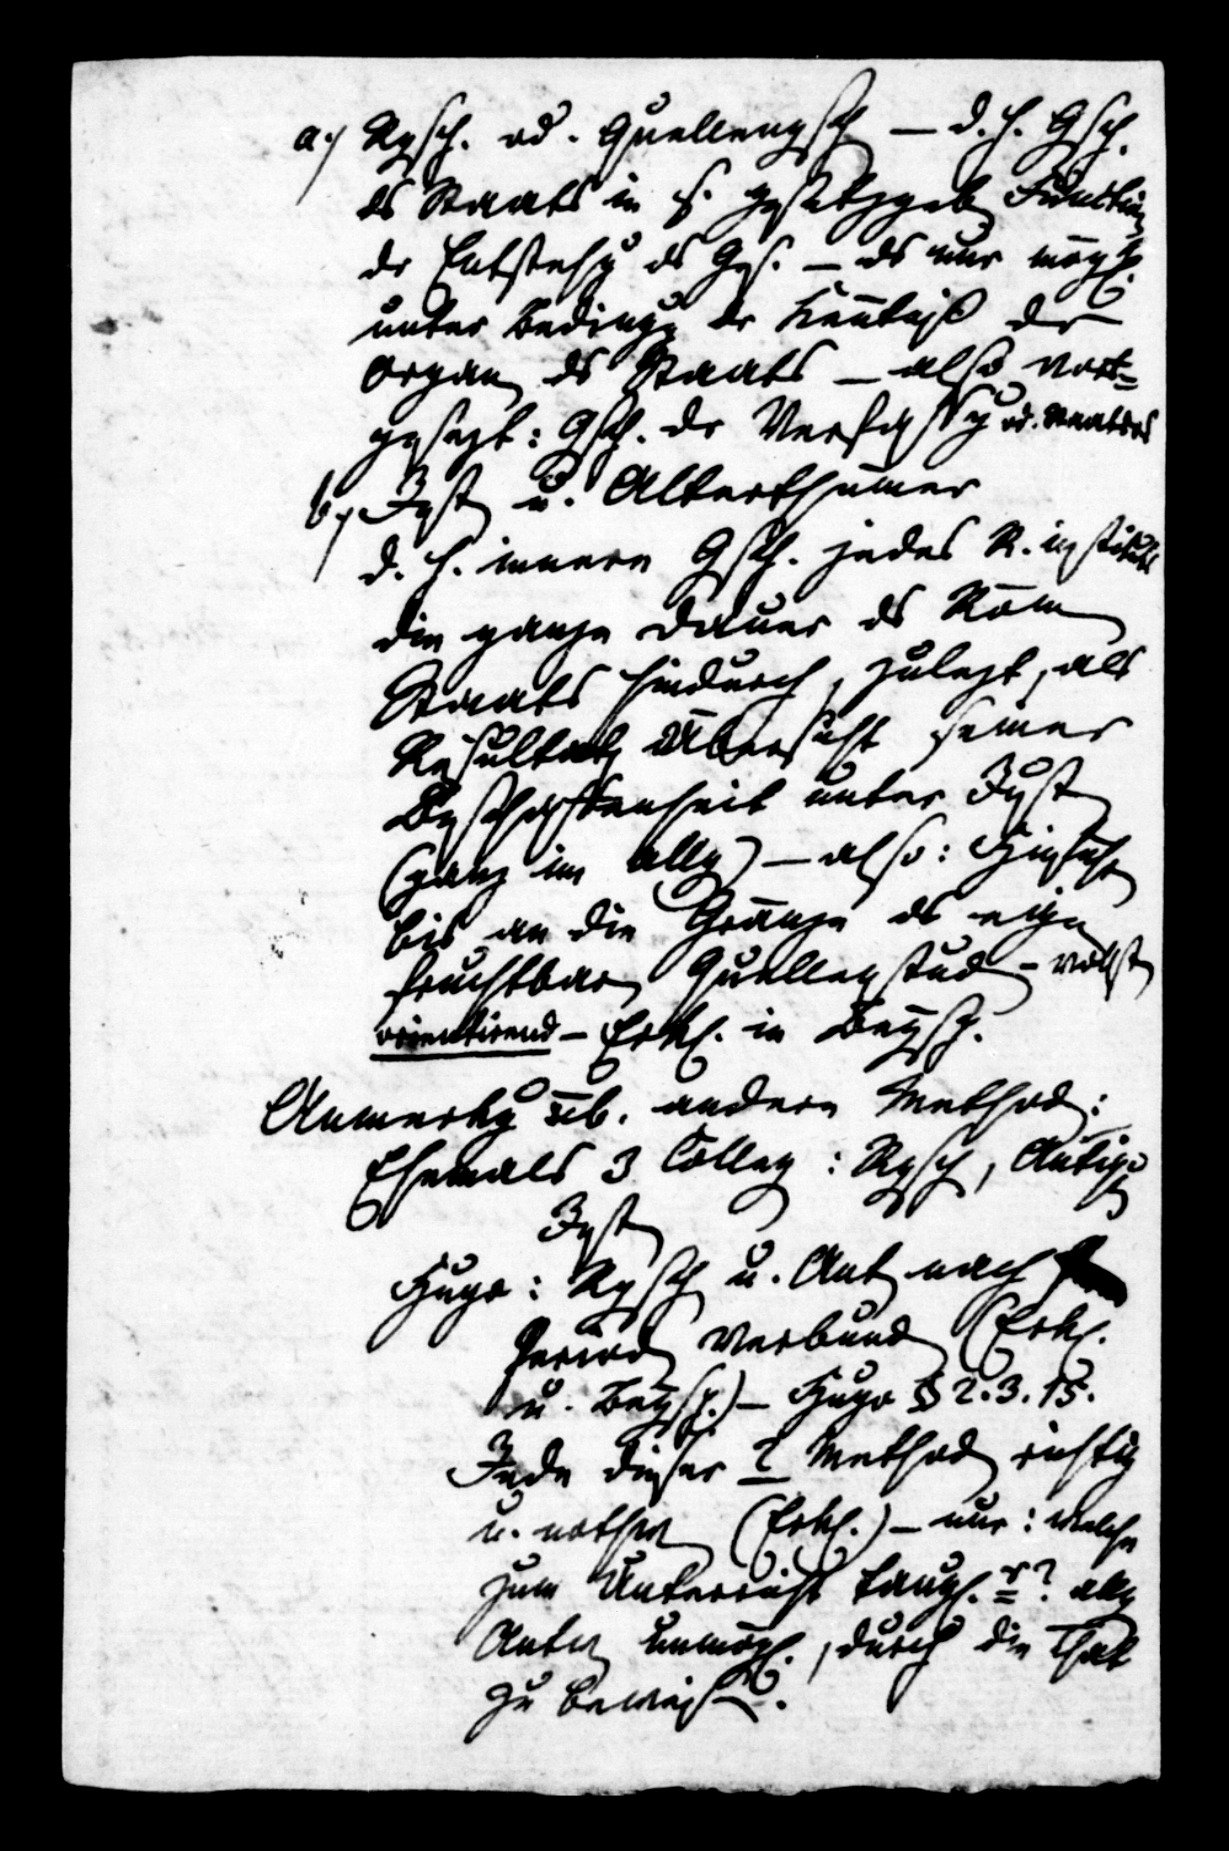 a.) Rgsch. od. Quellengsch – d. h. Gsch.
ds Staats in s. gesetzgeb Function
dr Entstehg ds Ges. – ds nur mögl.
unter Bedingg dr Kentniß der
Organ ds Staats – also
gesezt: Gsch. dr Verfassg od.
b.) Inst u. Alterthümer
d. h. innere Gsch. jedes R. instituts
die ganze Dauer ds Röm
Staats hindurch, zulezt, als
Resultat Übersicht seiner
Beschaffenheit unter Just
(ganz im Allg) – also: Hinsicht
bis an die Gränze ds eign
fruchtbar Quellenstud – vollst
orientirend – Erkl. in Beysp.
Anmerkg üb. andere Method:
Ehemals 3 Colleg: Rgsch, Antiqu
Inst
Hugo: Rgsch u. Ant nach
Period verbund (Erkl.
u. Beysp.) – Hugo § 2. 3. 15.
Jede dieser 2 Method richtig
u. nothw (Erkl.) – nur: welche
zum Unterricht taugl. r? allg
Antw unmögl., durch die That
zu beweisen.